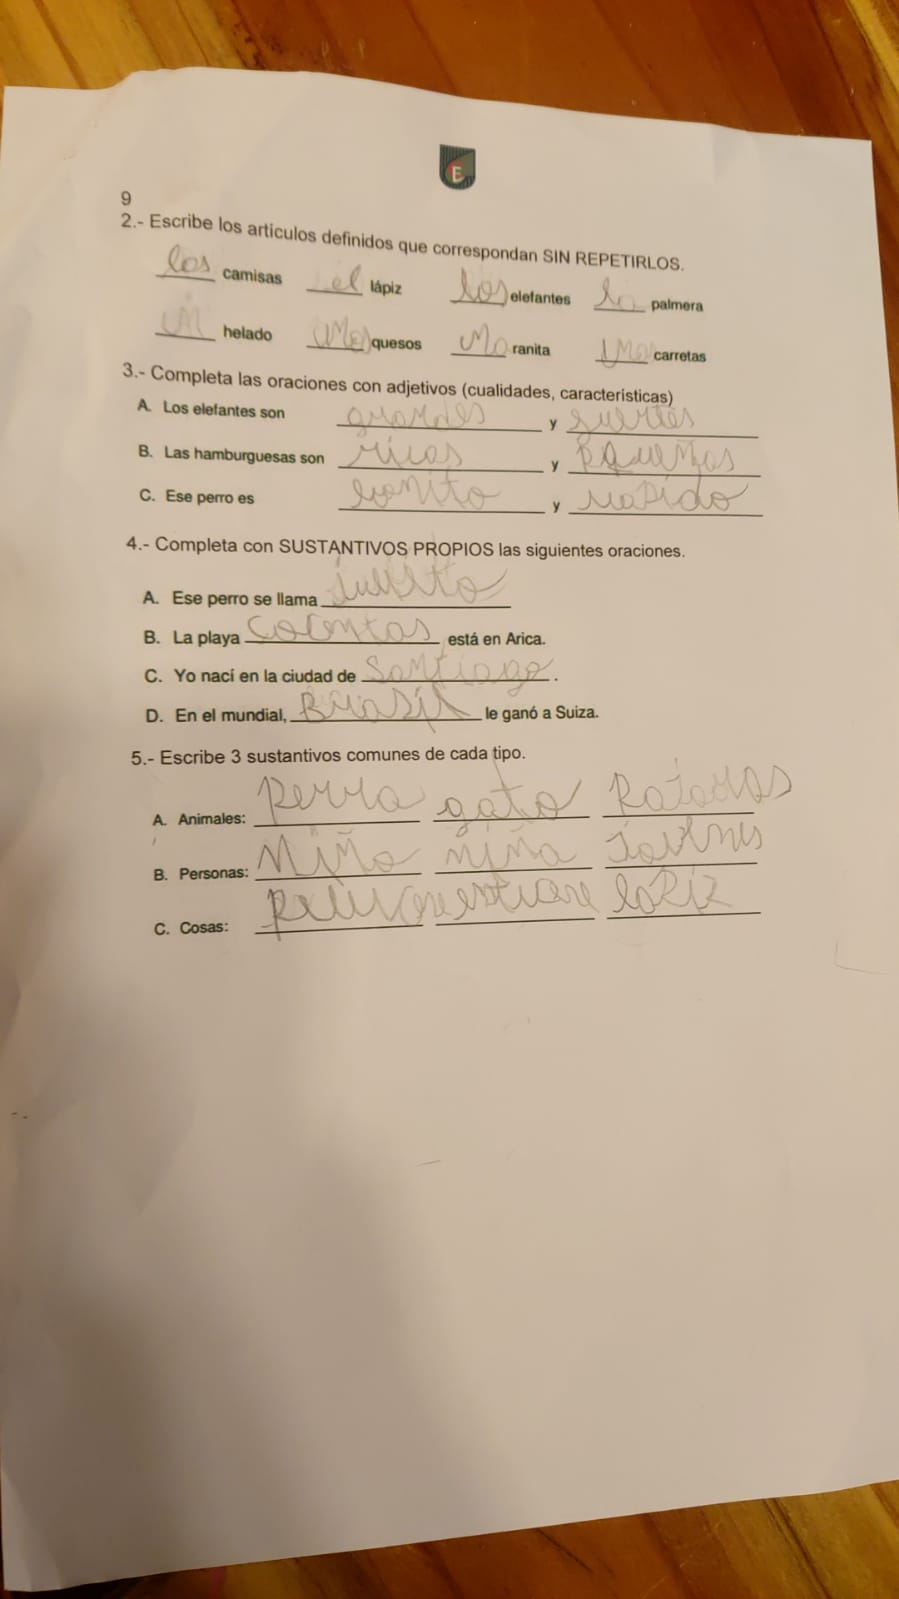 E
9
2.- Escribe los artículos definidos que correspondan SIN REPETIRLOS.
los camisas el lápiz los elefantes la palmera
un helado unos quesos una ranita unas carretas
3.- Completa las oraciones con adjetivos (cualidades, características)
A. Los elefantes son grandes y fuertes
B. Las hamburguesas son ricas y pequeñas
C. Ese perro es bonito y rapido
4.- Completa con SUSTANTIVOS PROPIOS las siguientes oraciones.
A. Ese perro se llama
B. La playa está en Arica.
C. Yo nací en la ciudad de Santiago.
D. En el mundial, Brasil le ganó a Suiza.
5.- Escribe 3 sustantivos comunes de cada tipo.
A. Animales: perro gato
B. Personas: Niño niña
C. Cosas: lapiz